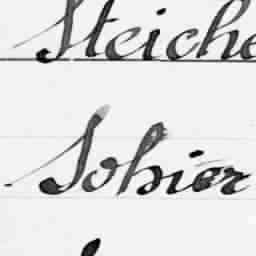 Steiche
Sohier